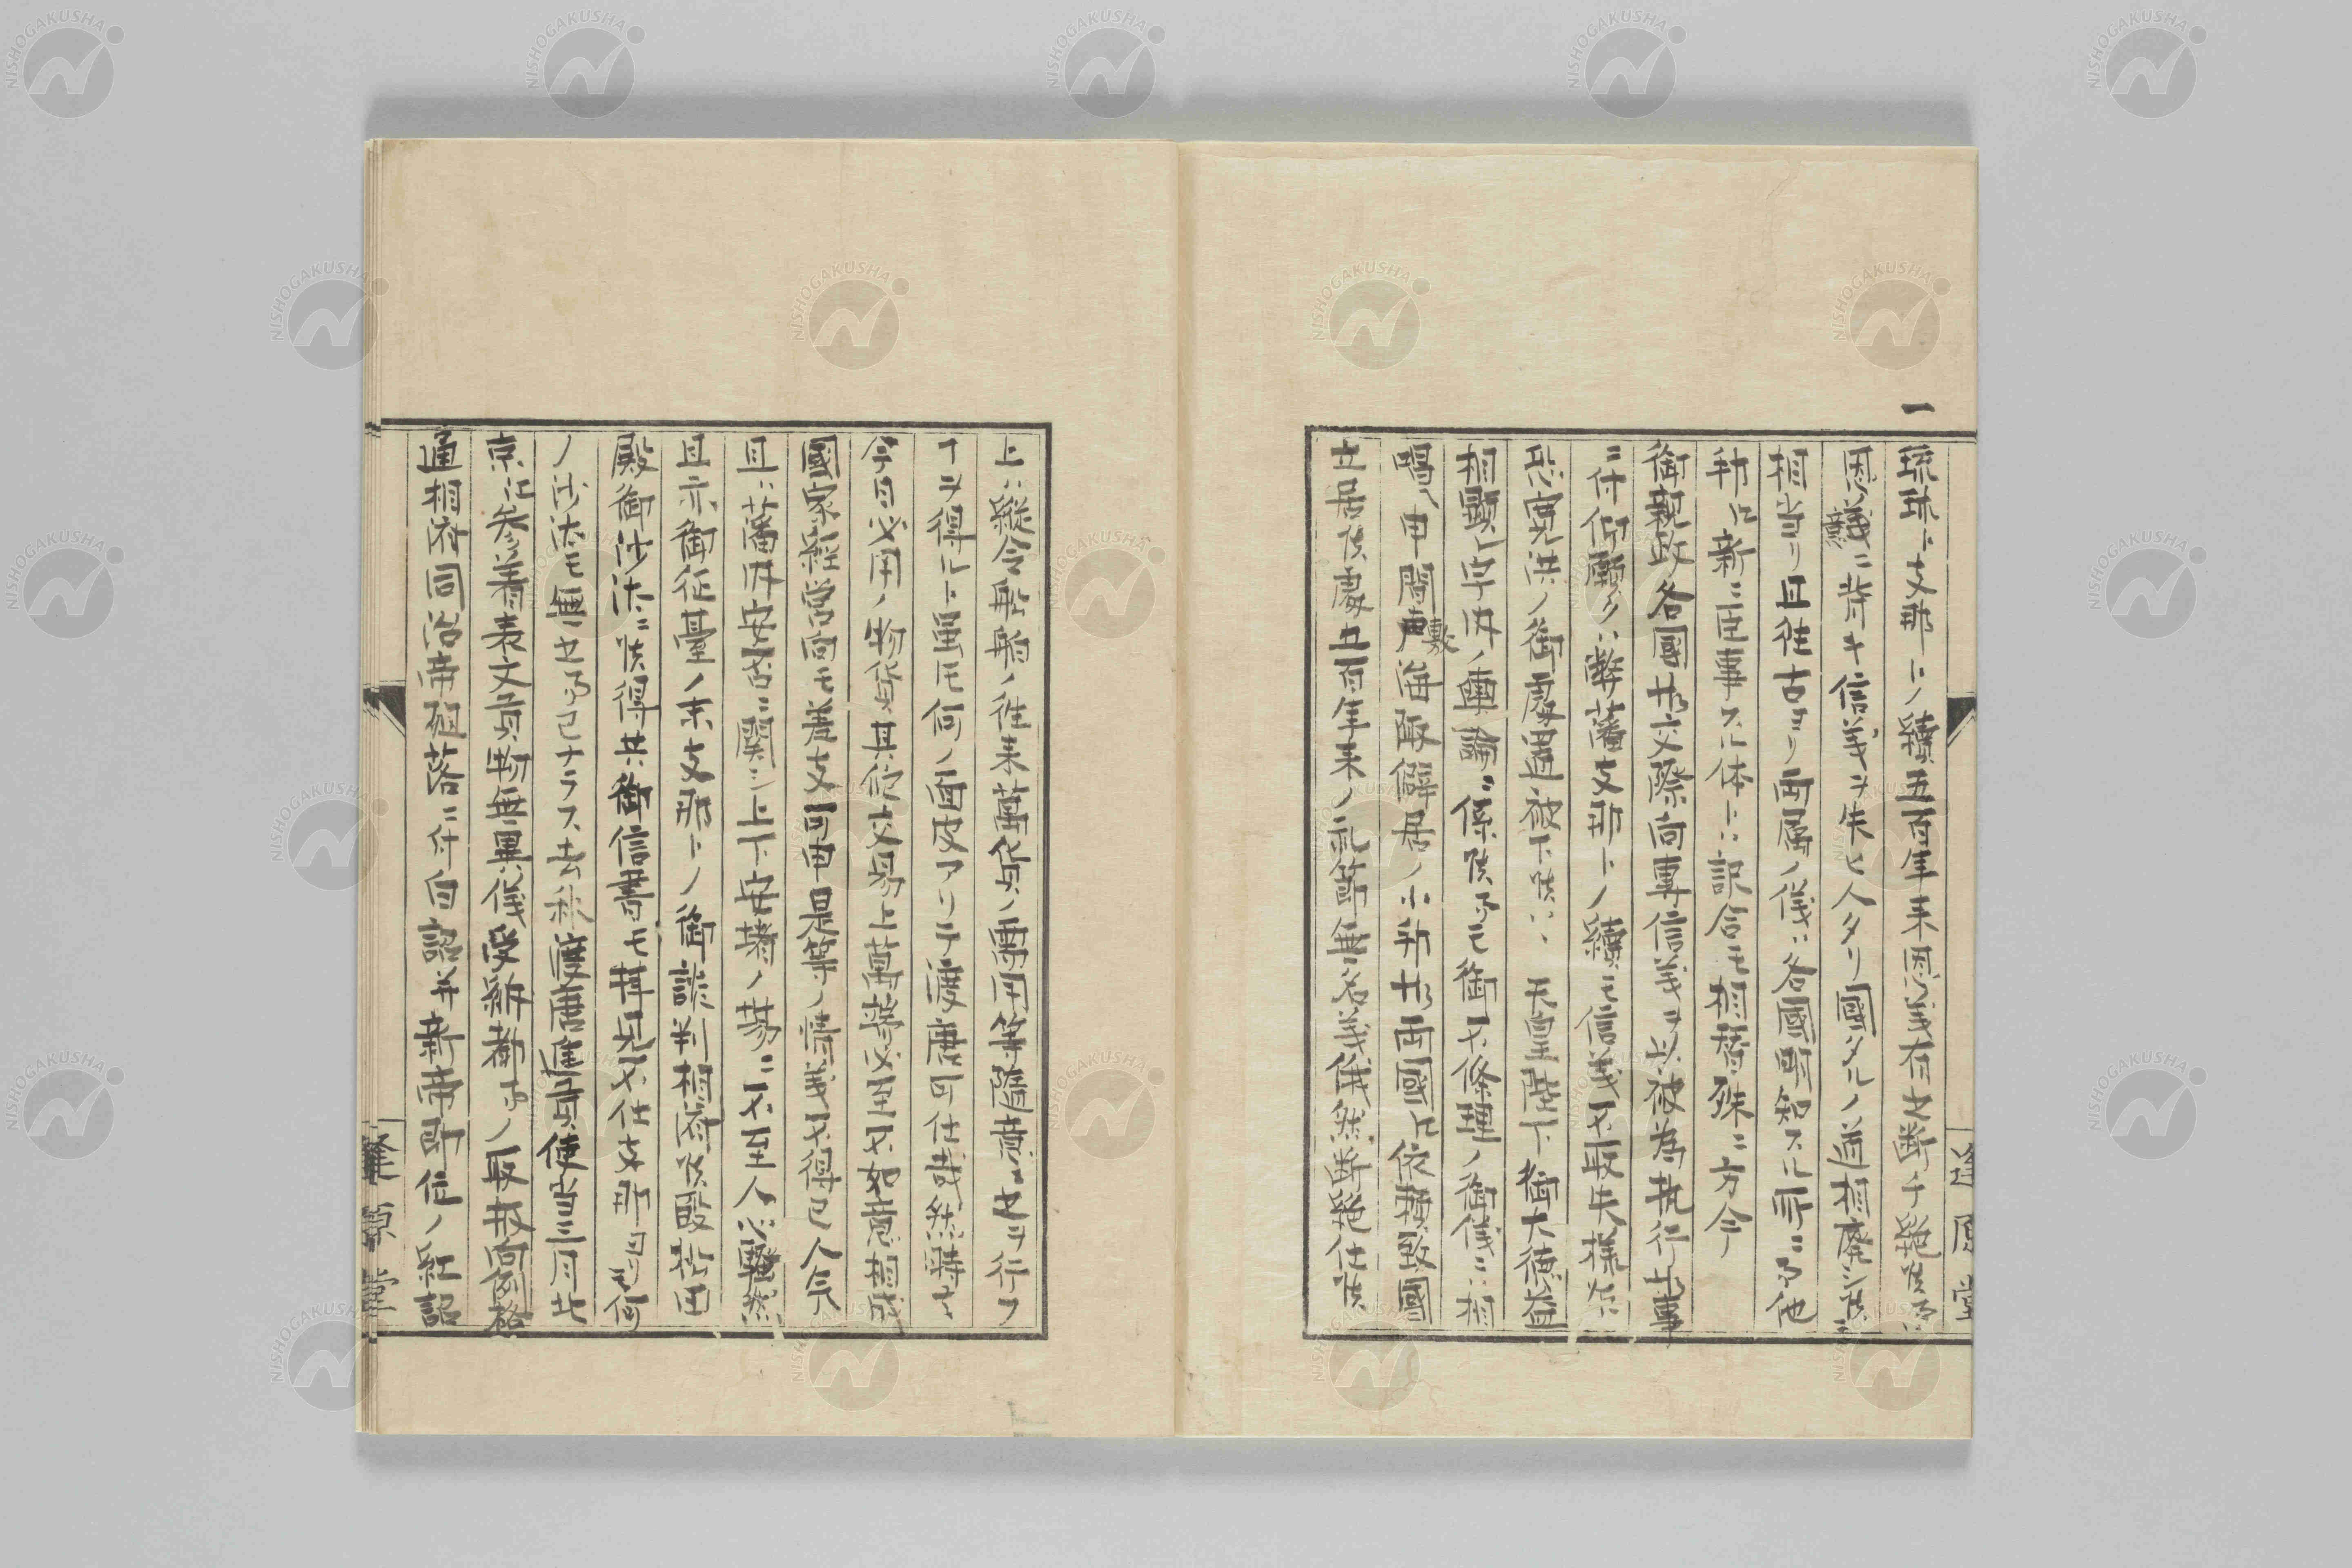 一
琉球ト支那トノ續五百年来恩義有之断チ絶候テハ
恩義ニ背キ信義ヲ失ヒ人タリ國タルノ道相廃シ候ニ
相当リ且往古ヨリ両属ノ儀ハ各國明知スル所ニテ他
邦ヒ新ニ臣事スル体トハ訳合モ相替殊ニ方今
御親政各國ト交際向専信義ヲ以被為執行此事
ニ付仰願クハ弊藩支那トノ續モ信義不取失様
恐寛洪ノ御處置被下候ハヽ天皇陛下御大徳益
相顕レ宇内ノ輿論ニ係候テモ御不條理ノ御儀ニハ相
唱ヘ申間敷海陬僻居ノ小邦ト両國ヒ依頼致國
立居候處五百年来ノ礼節無名義俄然断絶仕候
上ハ縦令船舶ノ往来萬貨ノ需用等隨意ニ之ヲ行フ
ヿヲ得ルト虽モ何ノ面皮アリテ渡唐可仕哉然時ハ
今日必用ノ物貨其他交易上萬端必至不如意相成
國家経営向モ差支可申是等ノ情義不得已人気
且ハ藩内安否ニ関シ上下安堵ノ場ニ不至人心騒然
且亦御征臺ノ末支那トノ御談判相済候段松田
殿御沙汰ニ候得共御信書モ拝見不仕支那ヨリモ何
ノ沙汰モ無之而已ナラス去秋渡唐進貢使当三月北
京ヒ参着表文貢物無異儀受納都テノ取扱向例格
通相済同治帝殂落ニ付白詔并新帝即位ノ紅詔
逢原堂
逢原堂
NISHOGAKUSHA